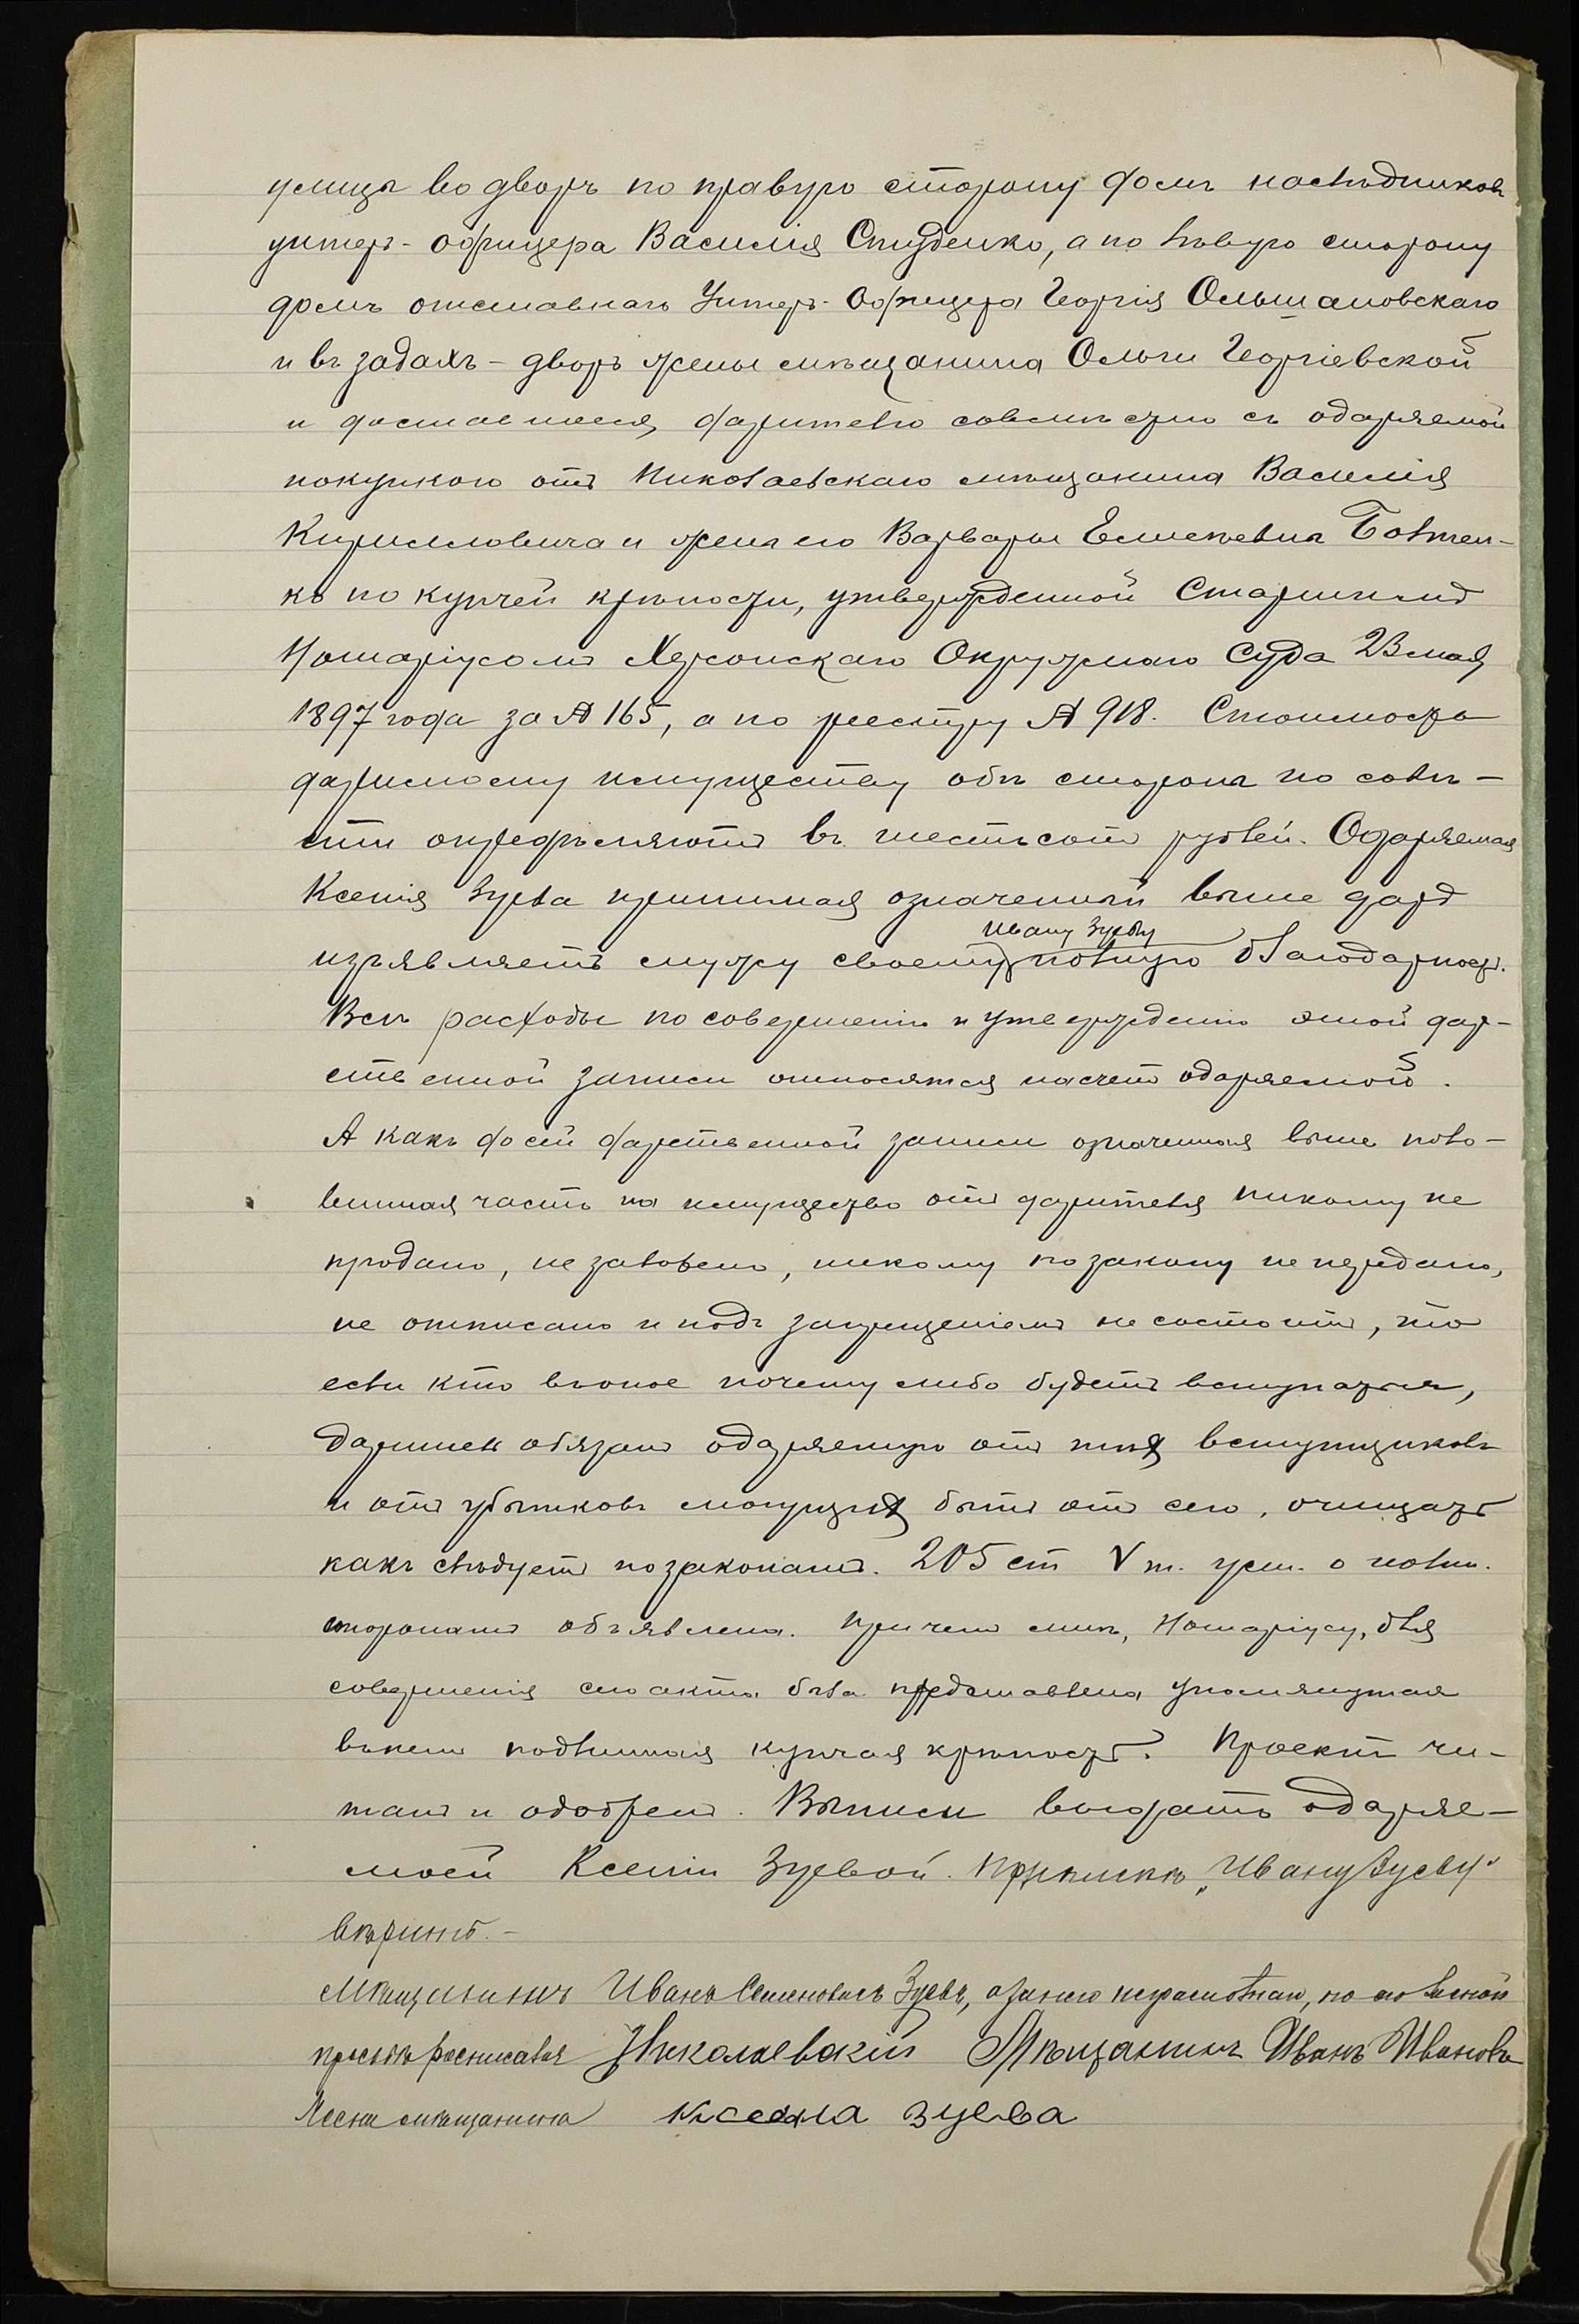 улицы во дворъ по правую сторону домъ наслѣдниковъ
унтеръ-офицера Василія Студенко, а по лѣвую сторону
домъ отставнаго Унтеръ-Офицера Георгія Ольшановскаго
и въ задахъ – дворъ жены мѣщанина Ольги Георгіевской
и доставшееся дарителю совмѣстно съ одаряемой
покупкою отъ Николаевскаго мѣщанина Василія
Кирилловича и жены его Варвары Елисѣевны Бовтен-
ко по купчей крѣпости, утвержденной Старшимъ
Нотаріусомъ Херсонскаго Окружнаго Суда 23 мая
1897 года за № 165, а по реестру № 918. Стоимость
даримому имуществу обѣ стороны по совѣ-
сти опредѣляютъ въ шестьсотъ рублей. Одаряемая
Ксенія Зуева принимая означенный выше даръ
Ивану Зуеву
изъявляетъ мужу своему полную благодарность.
Всѣ расходы по совершенію и утвержденію этой дар-
ственной записи относятся насчетъ одаряемой.
А какъ до сей дарственной записи означенная выше поло-
винная часть на имущество отъ дарителя никому не
продано, не заложено, никому по закону не передано,
не отписано и подъ запрещеніемъ не состоитъ, то
если кто въ оное почему либо будетъ вступаться,
даритель обязанъ одаряемую отъ тѣхъ вступщиковъ
и отъ убытковъ могущихъ быть отъ сего, очищать
какъ слѣдуетъ по законамъ. 205 ст V т. уст. о пошл.
сторонамъ объявлена. Причемъ мнѣ, Нотаріусу, для
совершенія сего акта была представлена упомянутая
въ немъ подлинная купчая крѣпость. Проектъ чи-
танъ и одобренъ. Выпись выдать одаряе-
мой Ксеніи Зуевой. Приписка „Ивану Зуеву“
вѣрить.–
Мѣщанинъ Иванъ Семеновичъ Зуевъ, а за него неграмотнаго, по его личной
просьбѣ росписался Николаевскій Мѣщанинъ Иванъ Ивановъ
Жена мѣщанина Ксения Зуева